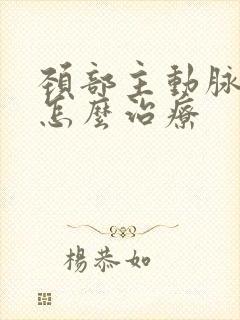 頚部主動脈
怎麼治療
楊恭如